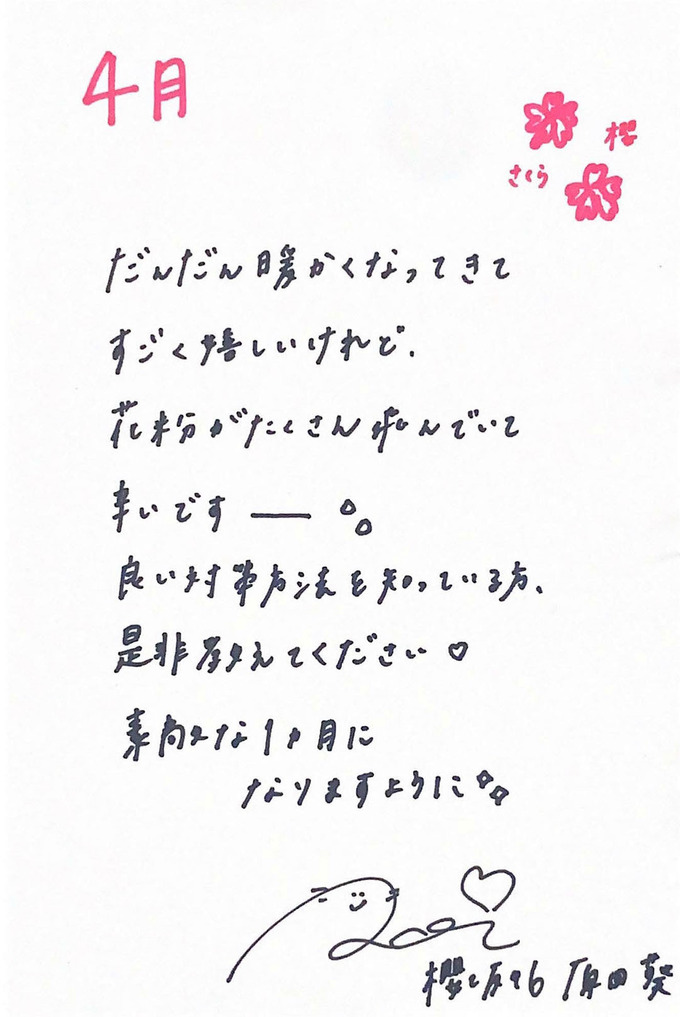 4月
櫻
さくら
だんだん暖かくなってきて
すごく嬉しいけれど、
花粉がたくさん飛んでいて
辛いです——。。
良い対策方法を知っている方、
是非教えてください♡
素敵な1ヶ月に
なりますように
Aoi
櫻坂46 原田葵